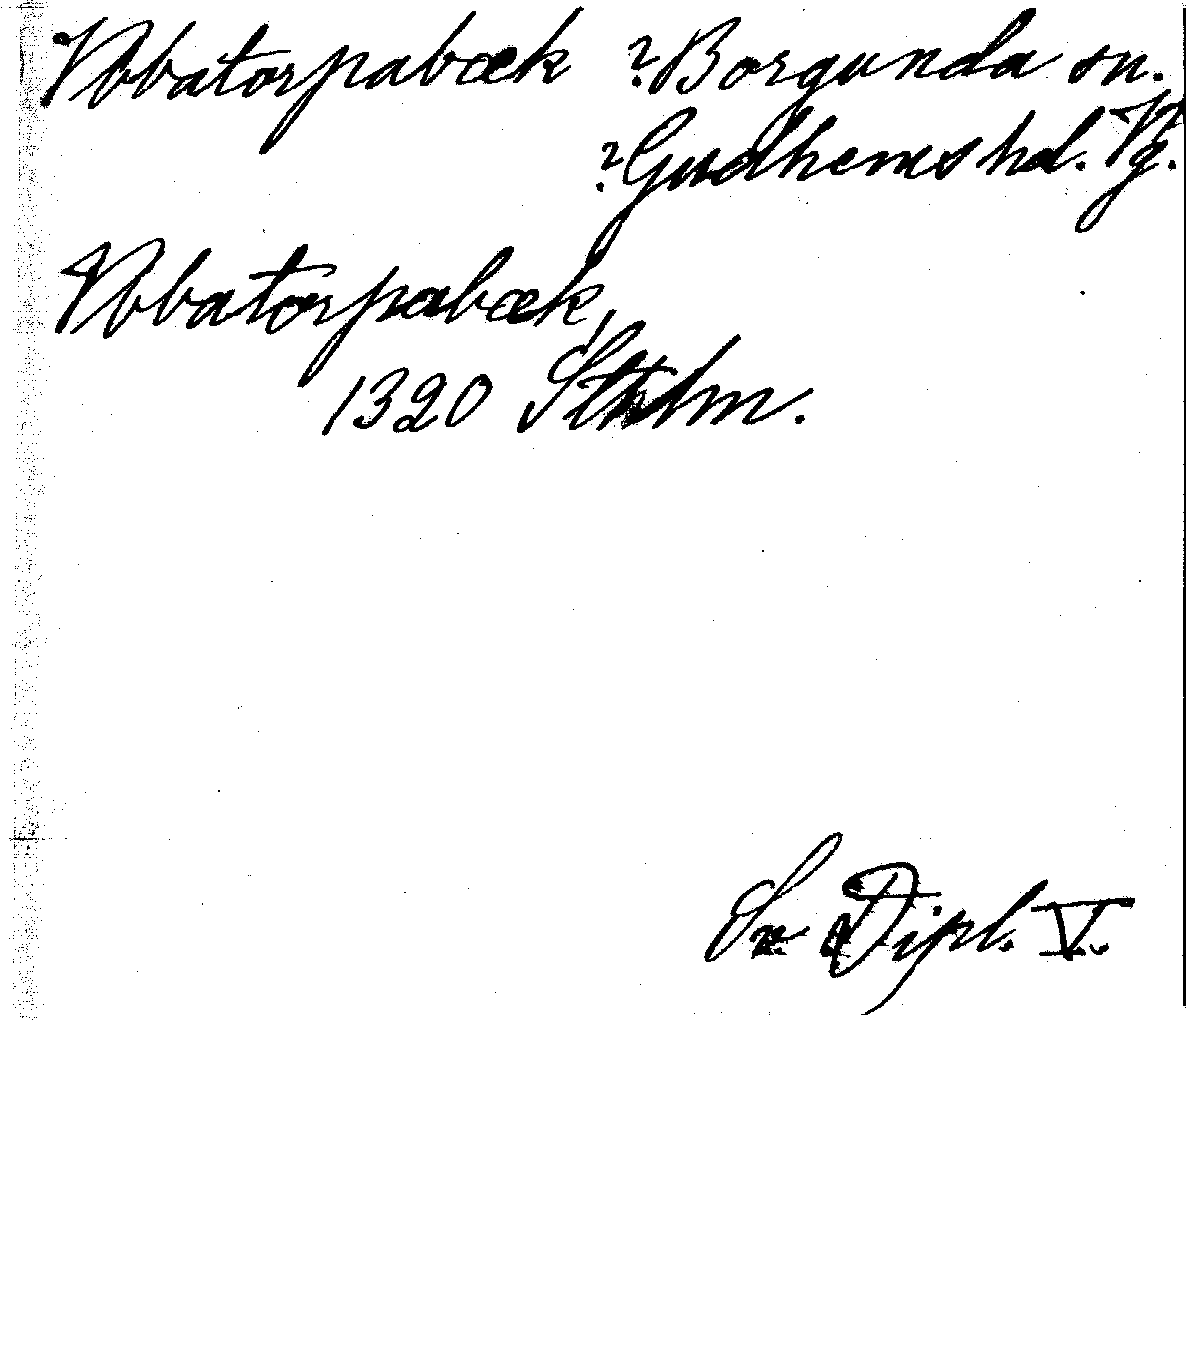 Vbbatorpabæk ?Borgunda sn.
?Gudhems hd. Vg.
Vbbatorpabæk,
1320 Sthlm.
Sv. Dipl. V.